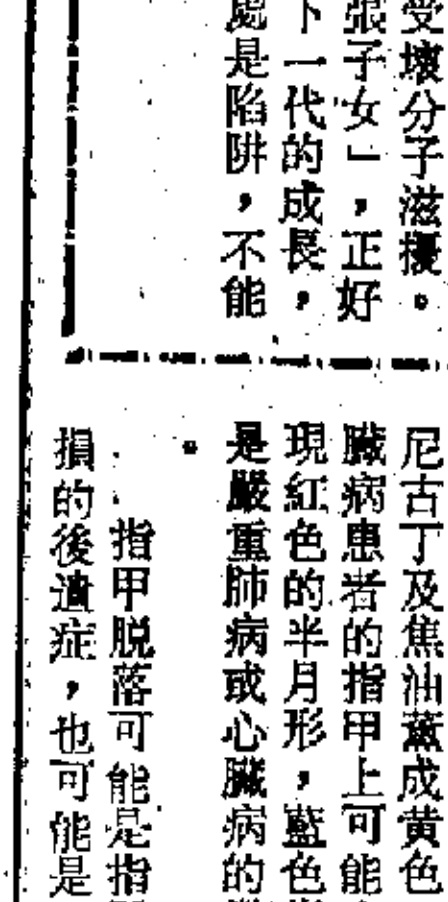 受壞分子滋擾。
張子女」，正好
下一代的成長，
處是陷阱，不能
尼古丁及焦油薰成黄色
臟病患者的指甲上可能
現紅色的半月形，藍色
是嚴重肺病或心臟病的
。
指甲脱落可能是指
損的後遺症，也可能是